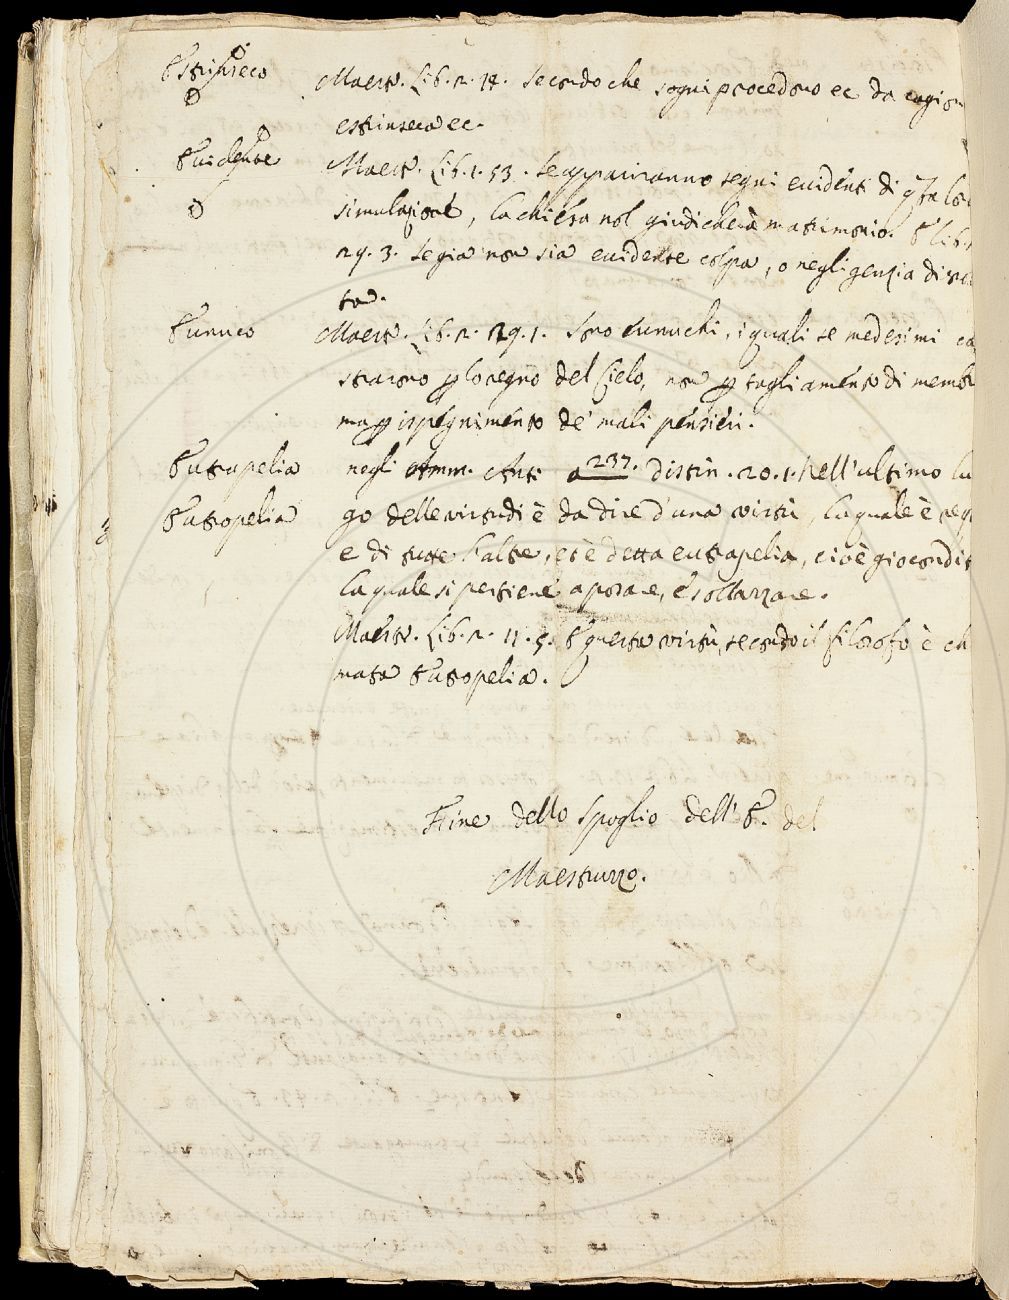 Estrinseco Maestr. Lib. 2. 14. secondo che sogni procedono ec da cagion
estrinseca ec.
Evidente Maestr. Lib. 1. 53. se appariranno segni evidenti di q̃sta loro
simulazione, la chiesa nol giudicherà matrimonio. E lib.
29. 3. se già non sia evidente colpa, o negligenzia di
ta.
Eunuco Maestr. Lib. 2. 29. 1. Sono eunuchi, i quali se medesimi ca
strarono p lo regno del Cielo, non p tagliamento di membr
ma p ispegnimento de' mali pensieri.
Eutrapelia negli Amm. Ant. a 237. distin. 20. 1. Nell'ultimo luo
Eutropelia go delle virtudi è da dire d'una virtù, la quale è
e di tutte l'altre, et è detta eutrapelia, cioè giocondit
la quale si pertiene a posare, e sollazzare.
Maestr. Lib. 2. 11. 5. E questa virtù, secondo il filosofo è chi
mata Eutropelia.
Fine dello Spoglio dell' E. del
Maestruzzo.